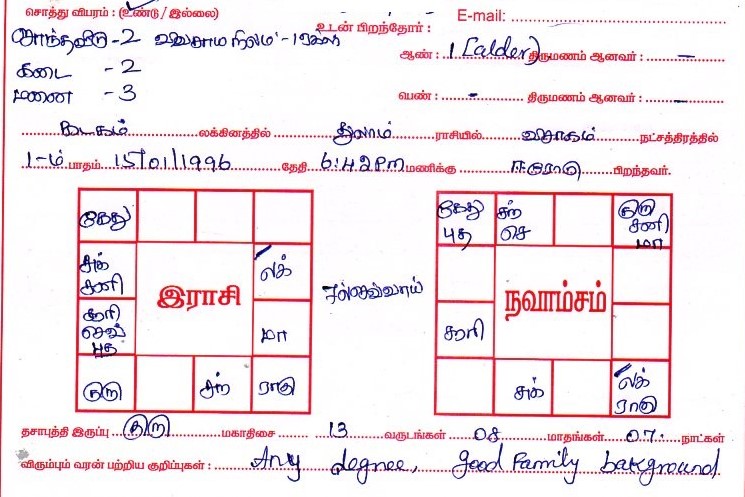 சொத்து விபரம் : (உண்டு / இல்லை)
உடன் பிறந்தோர் :
E-mail:
சொந்தவீடு - 2 விவசாய நிலம் - 1 ஏக்கர்
கடை - 2
மனை - 3
ஆண் : 1 (alder) திருமணம் ஆனவர் : -
பெண் : - திருமணம் ஆனவர் : -
கடகம் லக்கினத்தில் துலாம் ராசியில் விசாகம் நட்சத்திரத்தில்
1-ம் பாதம் 15/01/1996 தேதி 6:42PM மணிக்கு ஈரோடு பிறந்தவர்.
கேது
சுக் சனி
லக்
இராசி
சூரி செவ் புத
மா
குரு
சந்
ராகு
செவ்வாய்
கேது புத
சந் செ
குரு சனி மா
நவாம்சம்
சூரி
சுக்
லக் ராகு
தசாபுத்தி இருப்பு : குரு மகாதிசை 13 வருடங்கள் 08 மாதங்கள் 07. நாட்கள்
விரும்பும் வரன் பற்றிய குறிப்புகள் : Any degree, Good Family bakground